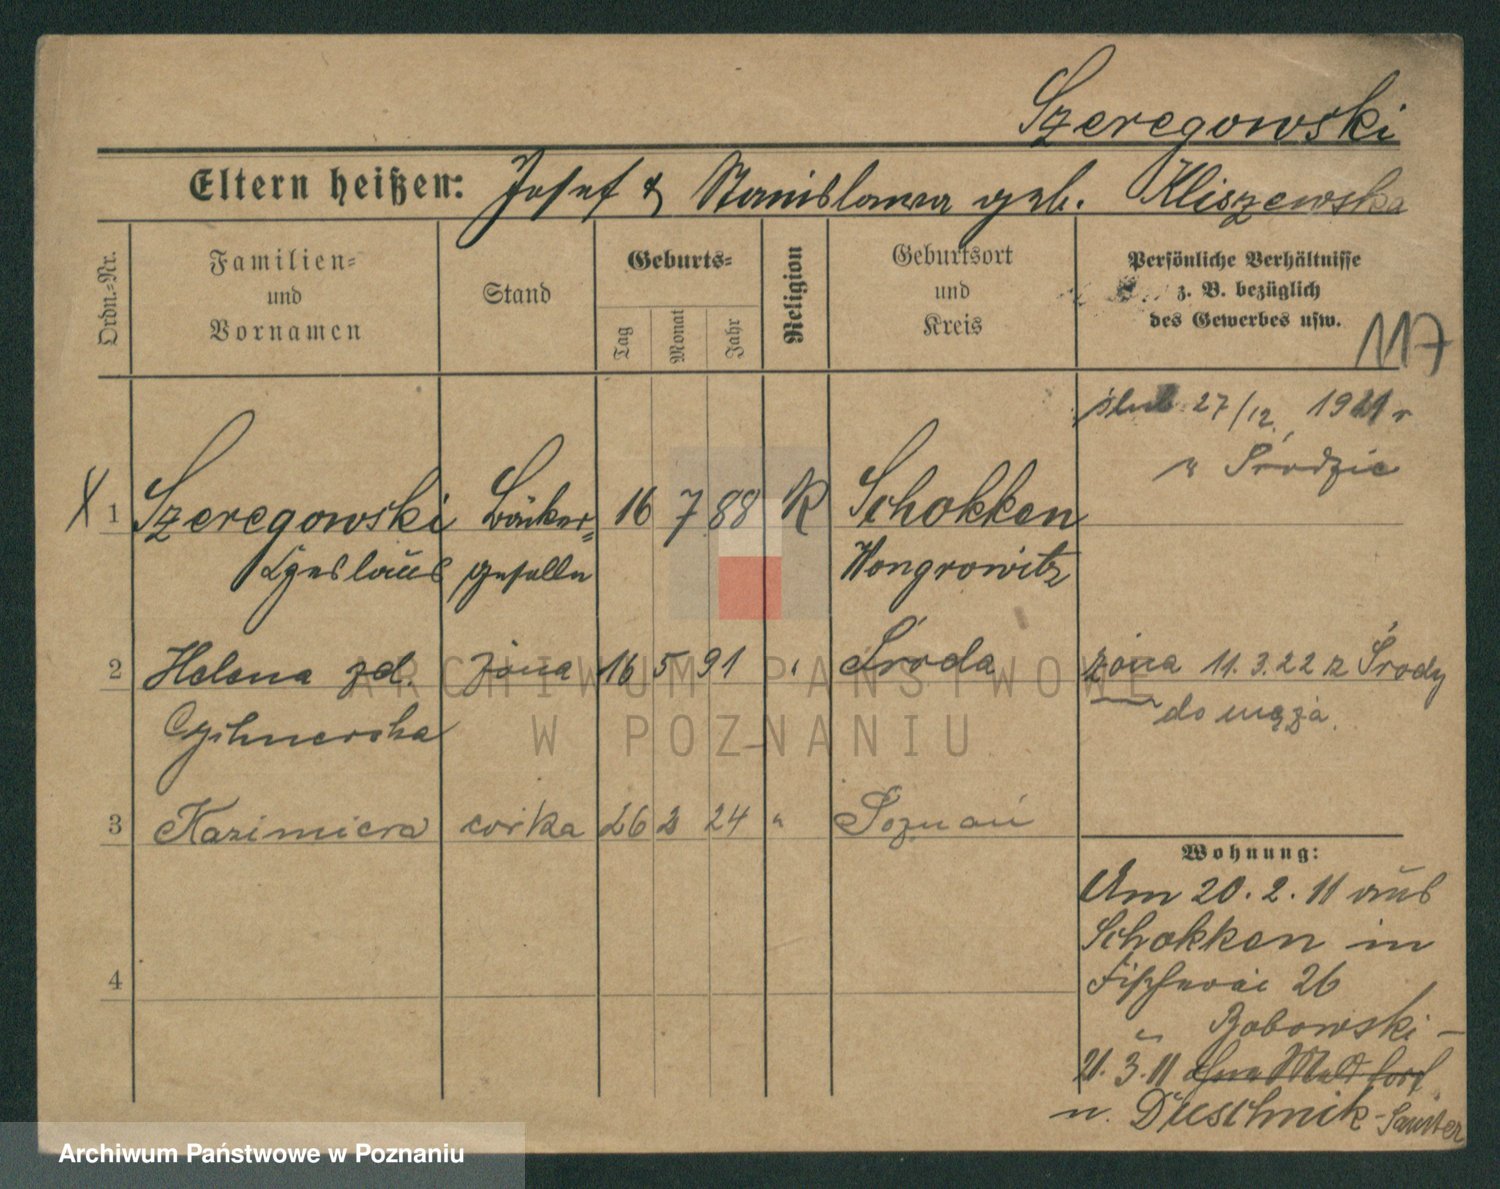 Szeregowski
Eltern heißen: Josef & Stanislawa geb. Kliszewska
Ordn.-Nr.
Familien-
und
Vornamen
Stand
Geburts-
Tag
Monat
Jahr
Religion
Geburtsort
und
Kreis
Persönliche Verhältnisse
z. B. bezüglich
des Gewerbes usw.
117
ślub 27/12. 1921 r
w Środzie
X 1 Szeregowski Bäcker= 16 7 88 K Schokken
Czeslaus geselle Wongrowitz
2 Helena zd żona 16 5 91 " Środa
żona 11.3.22 z Środy
do męża.
3 Kazimiera córka 26 2 24 " Poznań
4
Wohnung:
Am 20. 2. 11 aus
Schokken in
Fischerei 26
" Bobowski -
21. 3. 11
n. Duschnik - Samter
ARCHIWUM PAŃSTWOWE
W POZNANIU
Archiwum Państwowe w Poznaniu